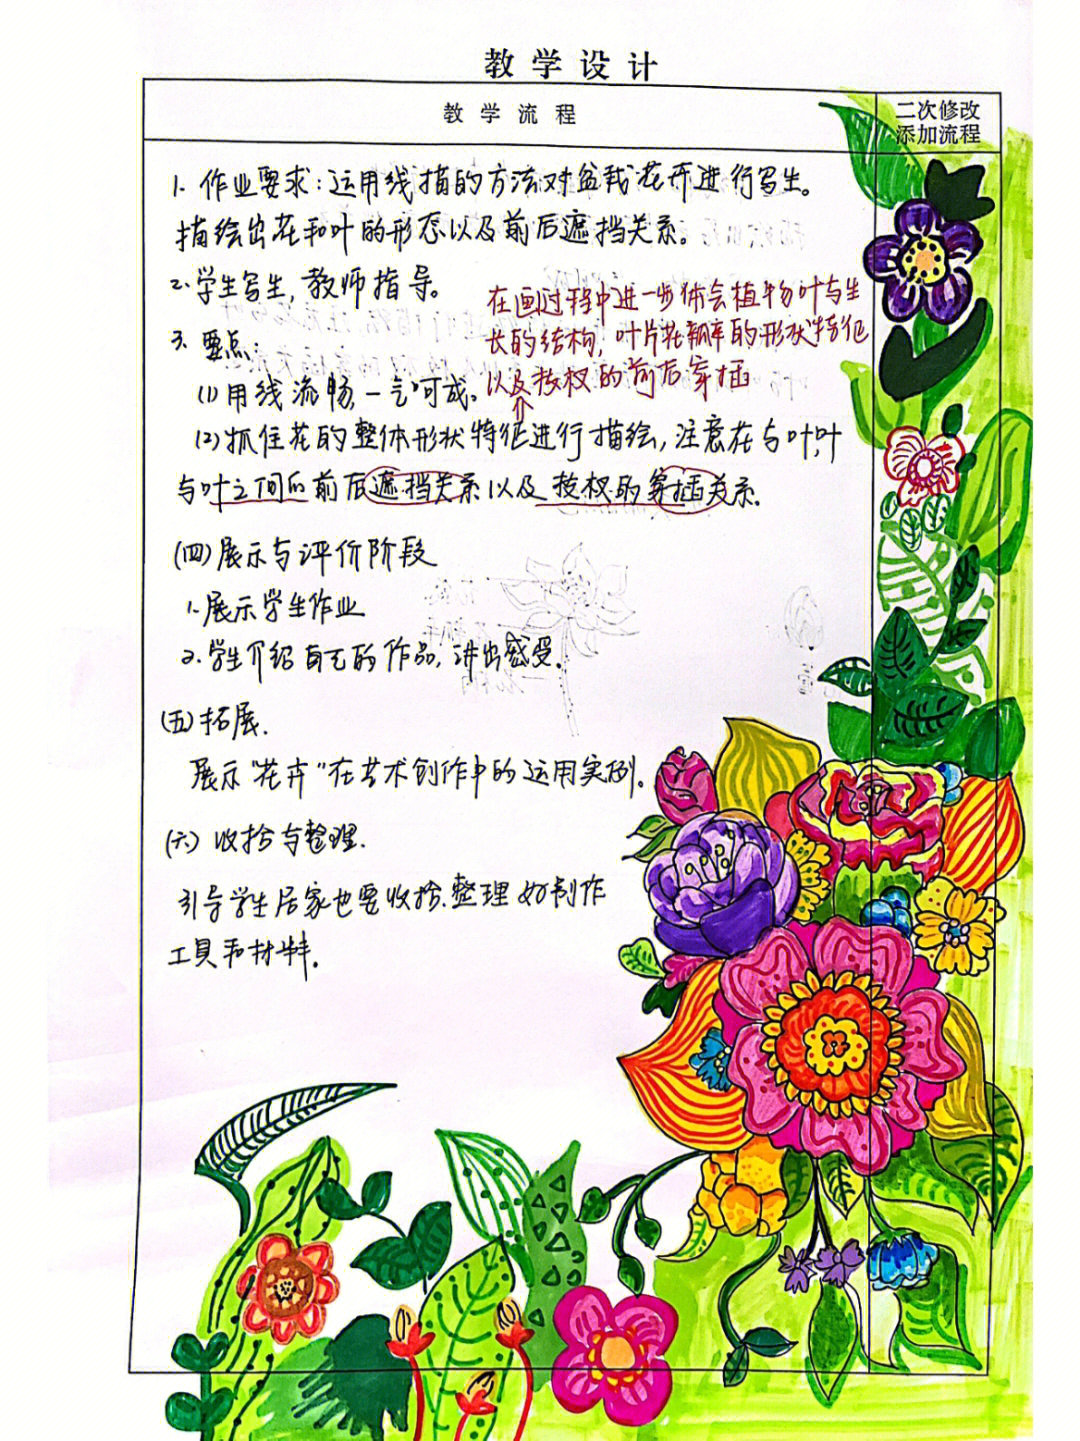 教学设计
教学流程
二次修改
添加流程
1. 作业要求：运用线描的方法对盆栽花卉进行写生。
描绘出花和叶的形态以及前后遮挡关系。
2. 学生写生，教师指导。
在画过程中进一步体会植物叶与生
长的结构，叶片花瓣的形状特征
以及枝杈的前后穿插
3. 要点：
(1) 用线流畅，一气呵成。
(2) 抓住花的整体形状特征进行描绘，注意花与叶，叶
与叶之间的前后遮挡关系以及枝杈的穿插关系。
(四) 展示与评价阶段
1. 展示学生作业
2. 学生介绍自己的作品，讲出感受。
(五) 拓展.
展示“花卉”在艺术创作中的运用实例。
(六) 收拾与整理.
引导学生居家也要收拾、整理好制作
工具和材料.